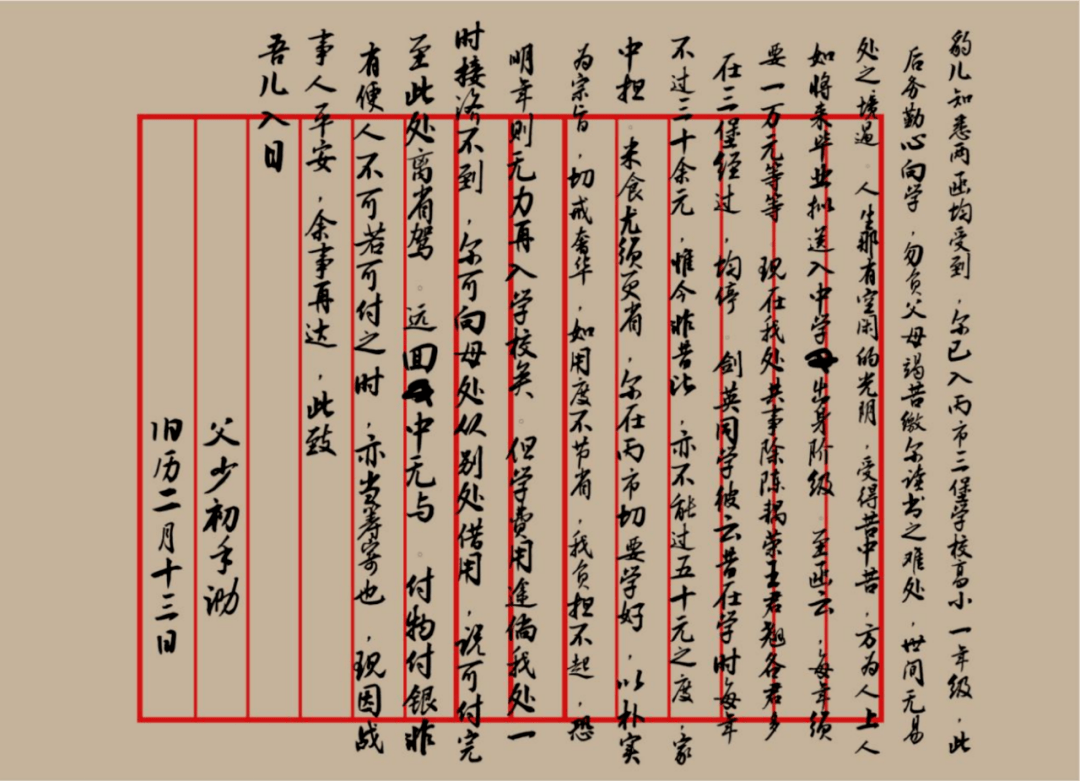 豹儿知悉两函均受到，尔已入丙市三堡学校高小一年级，此
后务勤心向学，勿负父母竭苦缴尔读书之难处，世间无易
处之境遇。人生那有空闲的光阴，受得苦中苦，方为人上人
如将来毕业拟送入中学出身阶级。至函云，每年须
要一万元等等，现在我处共事除陈耦荣王君翘各君多
在三堡经过，均停。剑英同学彼云昔在学时每年
不过三十余元，惟今昨昔比，亦不能过五十元之度，家
中担。米食尤须更省，尔在丙市切要学好，以朴实
为宗旨，切戒奢华，如用度不节省，我负担不起，恐
明年则无力再入学校矣。但学费用途倘我处一
时接济不到，尔可向母处从别处借用，说可付完
至此处离省驾。远回中无与。付物付银昨
有便人不可若可付之时，亦当筹寄也，现因战
事人平安，余事再达，此致
吾儿入目
父少初手泐
旧历二月十三日